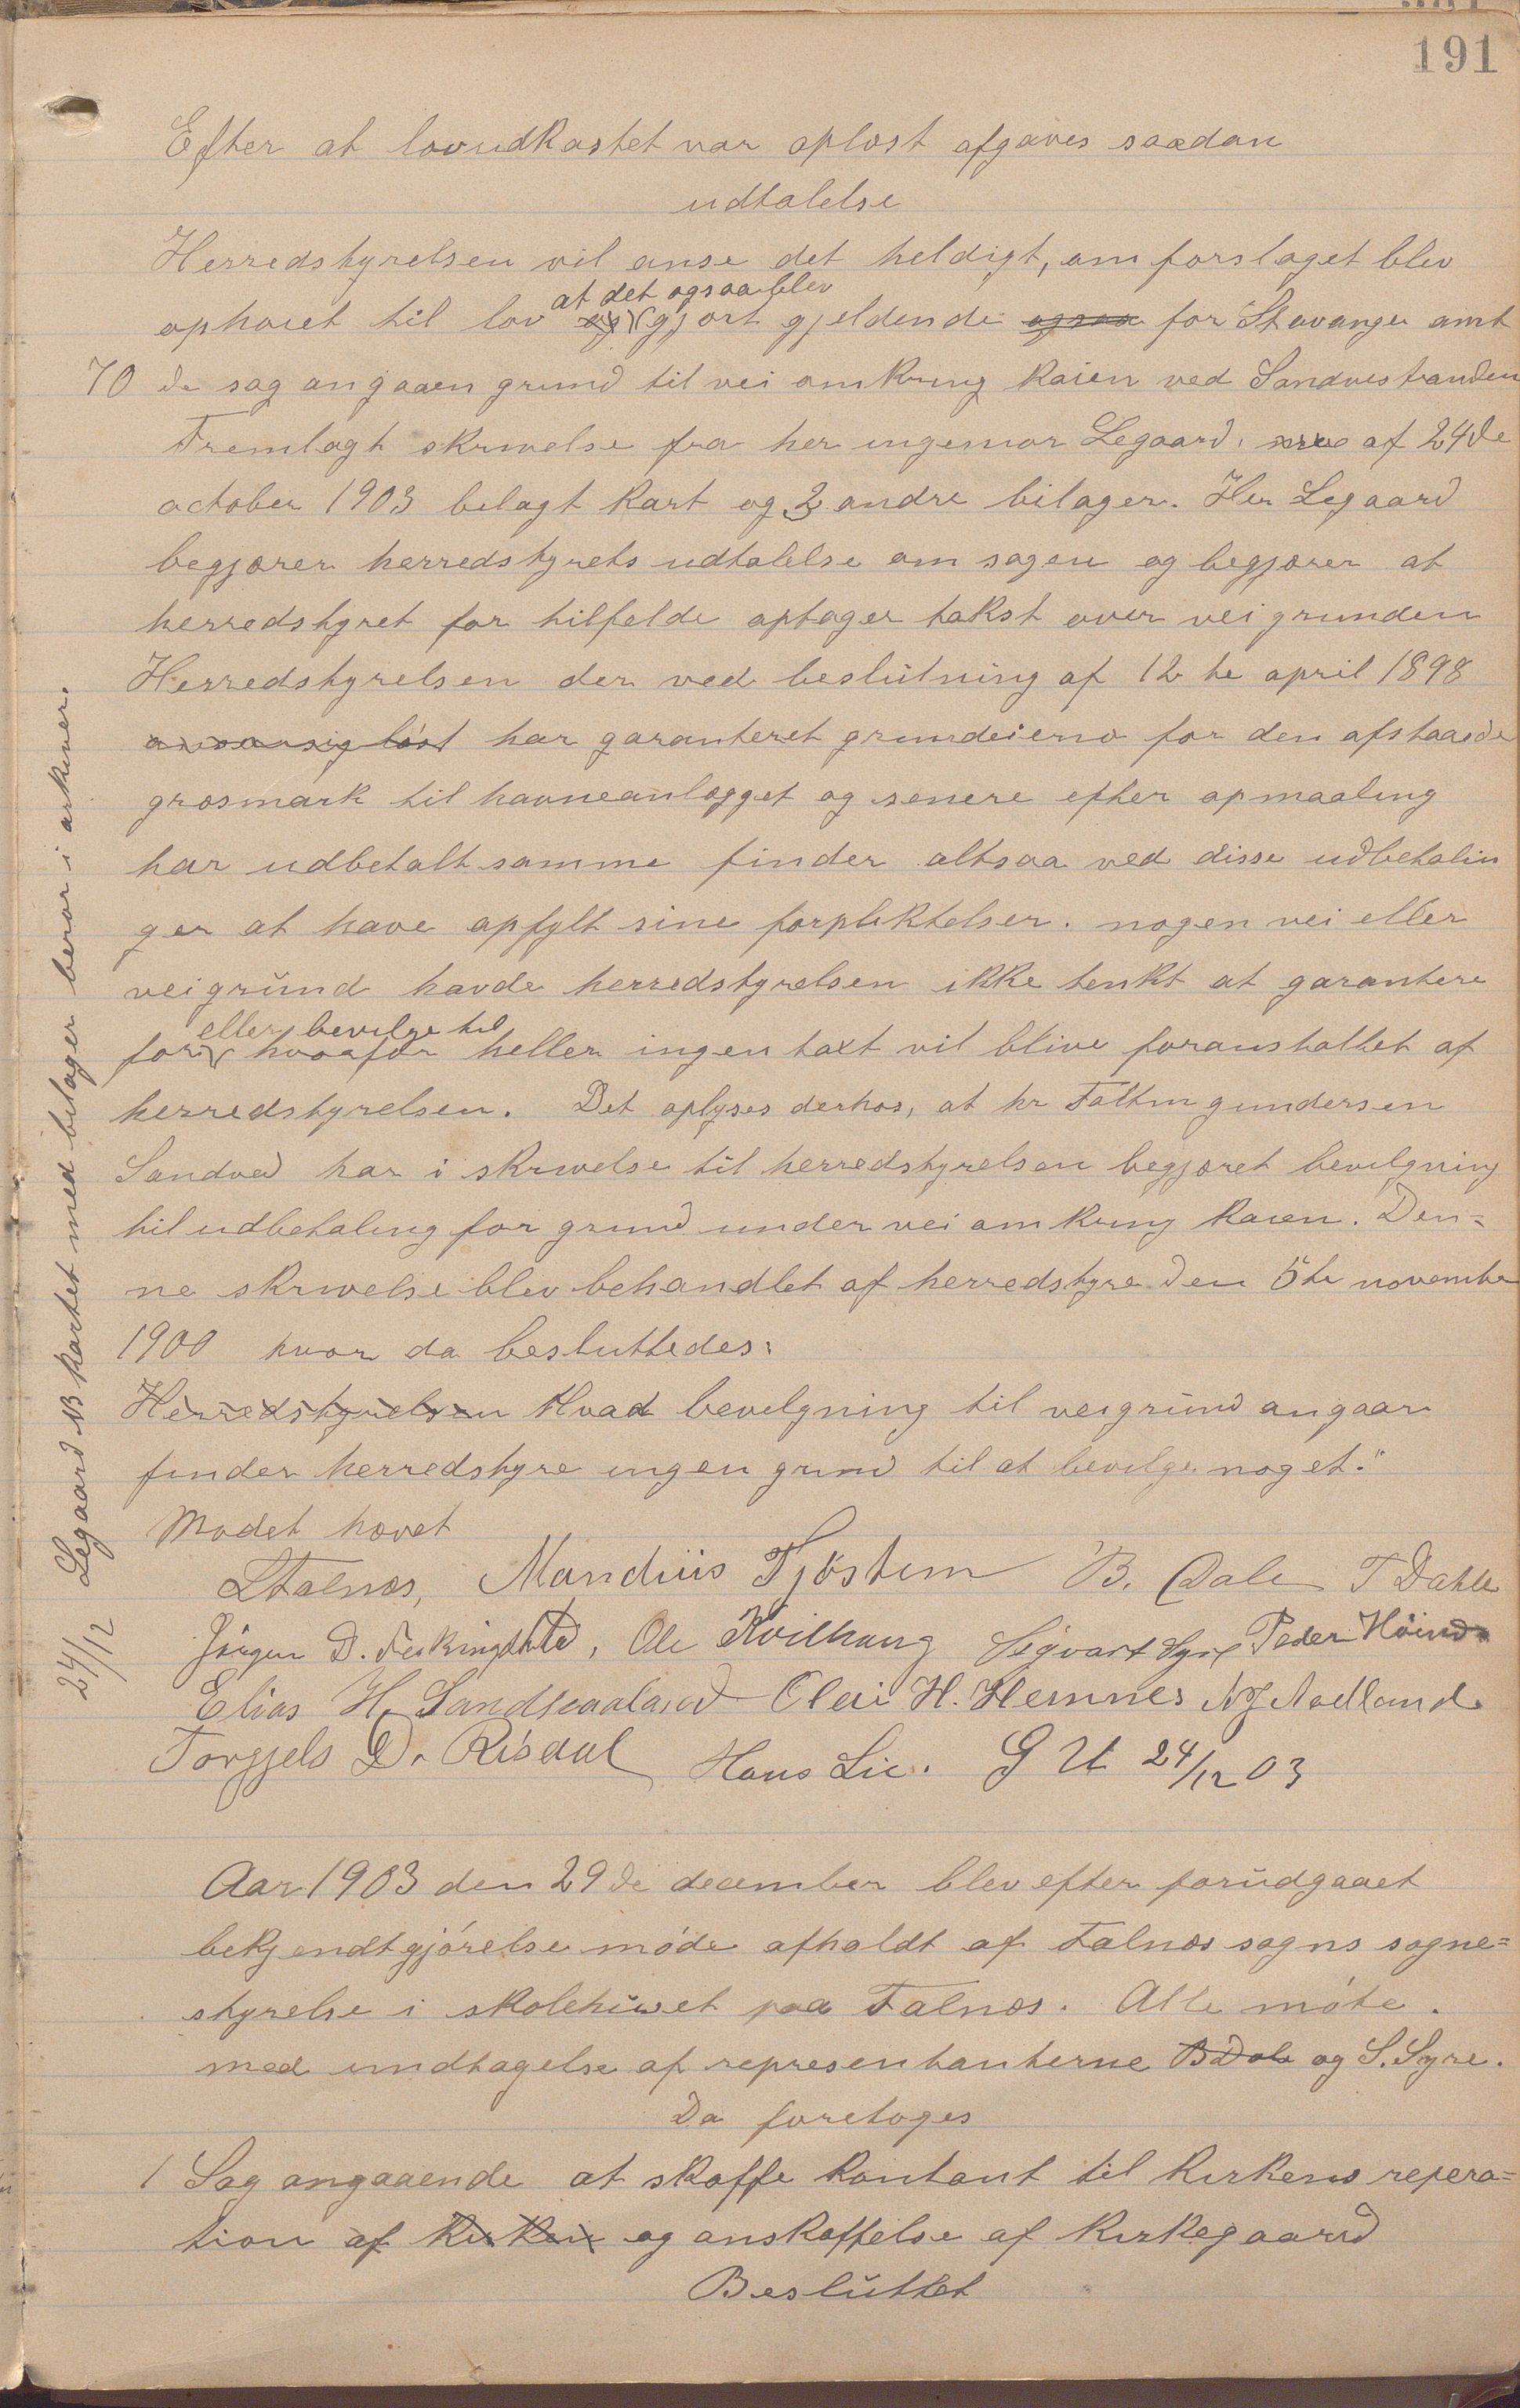 191
Efter at lovudkastet var oplæst afgaves saadan
udtalelse
Herredstyrelsen vil anse det heldigt, om forslaget blev
ophøiet til lov og at det ogsaa blev gjort gjeldende ogsaa for Stavanger amt
70 de sag angaaen grund til vei omkring kaien ved Sandvestranden
Fremlagt skrivelse fra her ingeniør Legaard. af 24de
october 1903 belagt kart og 3 andre bilager. Her Legaard
begjærer herredstyrets udtalelse om sagen og begjærer at
herredstyret for tilfelde optager takst over veigrunden
Herredstyrelsen der ved beslutning af 12te april 1898
har garanteret grundeierne for den afstaaede
græsmark til havneanlægget og senere efter opmaaling
har udbetalt samme finder altsaa ved disse udbetalin
ger at have opfylt sine forpliktelser. nogen vei eller
veigrund havde herredstyrelsen ikke tenkt at garantere
for eller bevilge til hvorfor heller ingen taxt vil blive foranstaltet af
herredstyrelsen. Det oplyses derhos, at hr Faltin gundersen
Sandved har i skrivelse til herredstyrelsen begjæret bevilgning
til udbetaling for grund under vei omkring kaien. Den=
ne skrivelse blev behandlet af herredstyre den 5te novembe
1900 hvor da besluttedes:
Herredstyrelsen Hvad bevilgning til veigrund angaar
finder herredstyre ingen grund til at bevilge noget."
Mødet hævet
LFalnes, Mandius Tjøstem B. Dale T Dahle
Jørgen D. Ferkingstad, Ole Kvilhaug Sigvart Syre Peder Høines
Elias H. Sandhaaland Olai H. Hemnes NJ Aadland
Torgjels D. Risdal Hans Lie. G U 24/12 03
24/12 Legaard NB kartet med bilager beror i arkivet.
Aar 1903 den 29de december blev efter forudgaaet
bekjendtgjørelse møde afholdt af Falnes sogns sogne=
styrelse i skolehuset paa Falnes. Alle møte.
med undtagelse af representanterne BDale og S. Syre.
Da foretoges
1 Sag angaaende at skaffe kontant til kirkens repera=
tion af Kirken og anskaffelse af kirkegaard
Besluttet